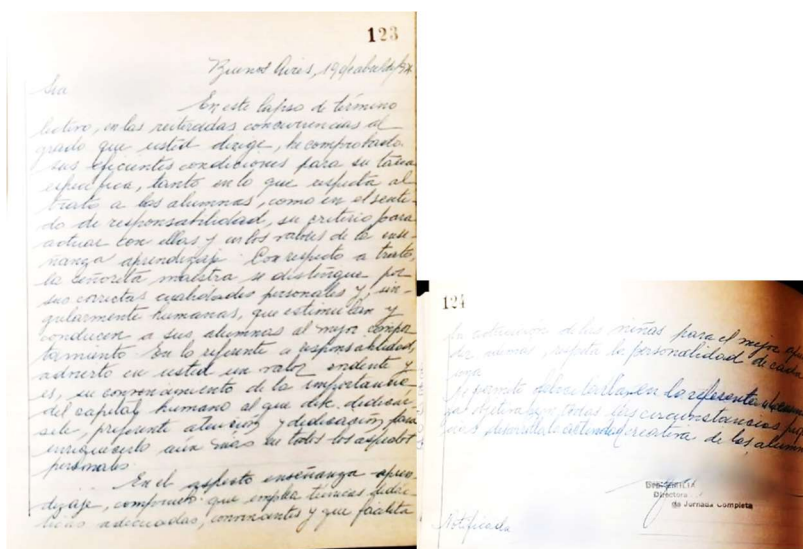 123
Buenos Aires, 19 de abril de
Sra
En este lapso de término
lectivo, en las reiteradas concurrencias al
grado que usted dirige, he comprobado
sus eficientes condiciones para su tarea
específica, tanto en lo que respecta al
trato a las alumnas, como en el senti-
do de responsabilidad, su criterio para
actuar con ellas y en los valores de la ense-
ñanza aprendizaje. Con respecto a trato,
la señorita maestra se distingue por
sus correctas cualidades personales y, sin-
gularmente humanas, que estimulan y
conducen a sus alumnas al mejor compor
tamiento. En lo referente a responsabilidad,
advierto en usted un valor evidente y
es, su convencimiento de la importancia
del capital humano al que debe dedicar
sele, preferente atención y dedicación para
enriquecerlo aún más en todos los aspectos
personales.
En el aspecto enseñanza apren
dizaje, compruebo que emplea técnicas didác
ticas adecuadas, convenientes y que facilita
124
la actuación de las niñas para el mejor
de mismas, respeta la personalidad de cada
una
Me permito en lo referente
todas las circunstancias
desarrolle creativa de las alumn
Directora
de Jornada Completa
Notificada